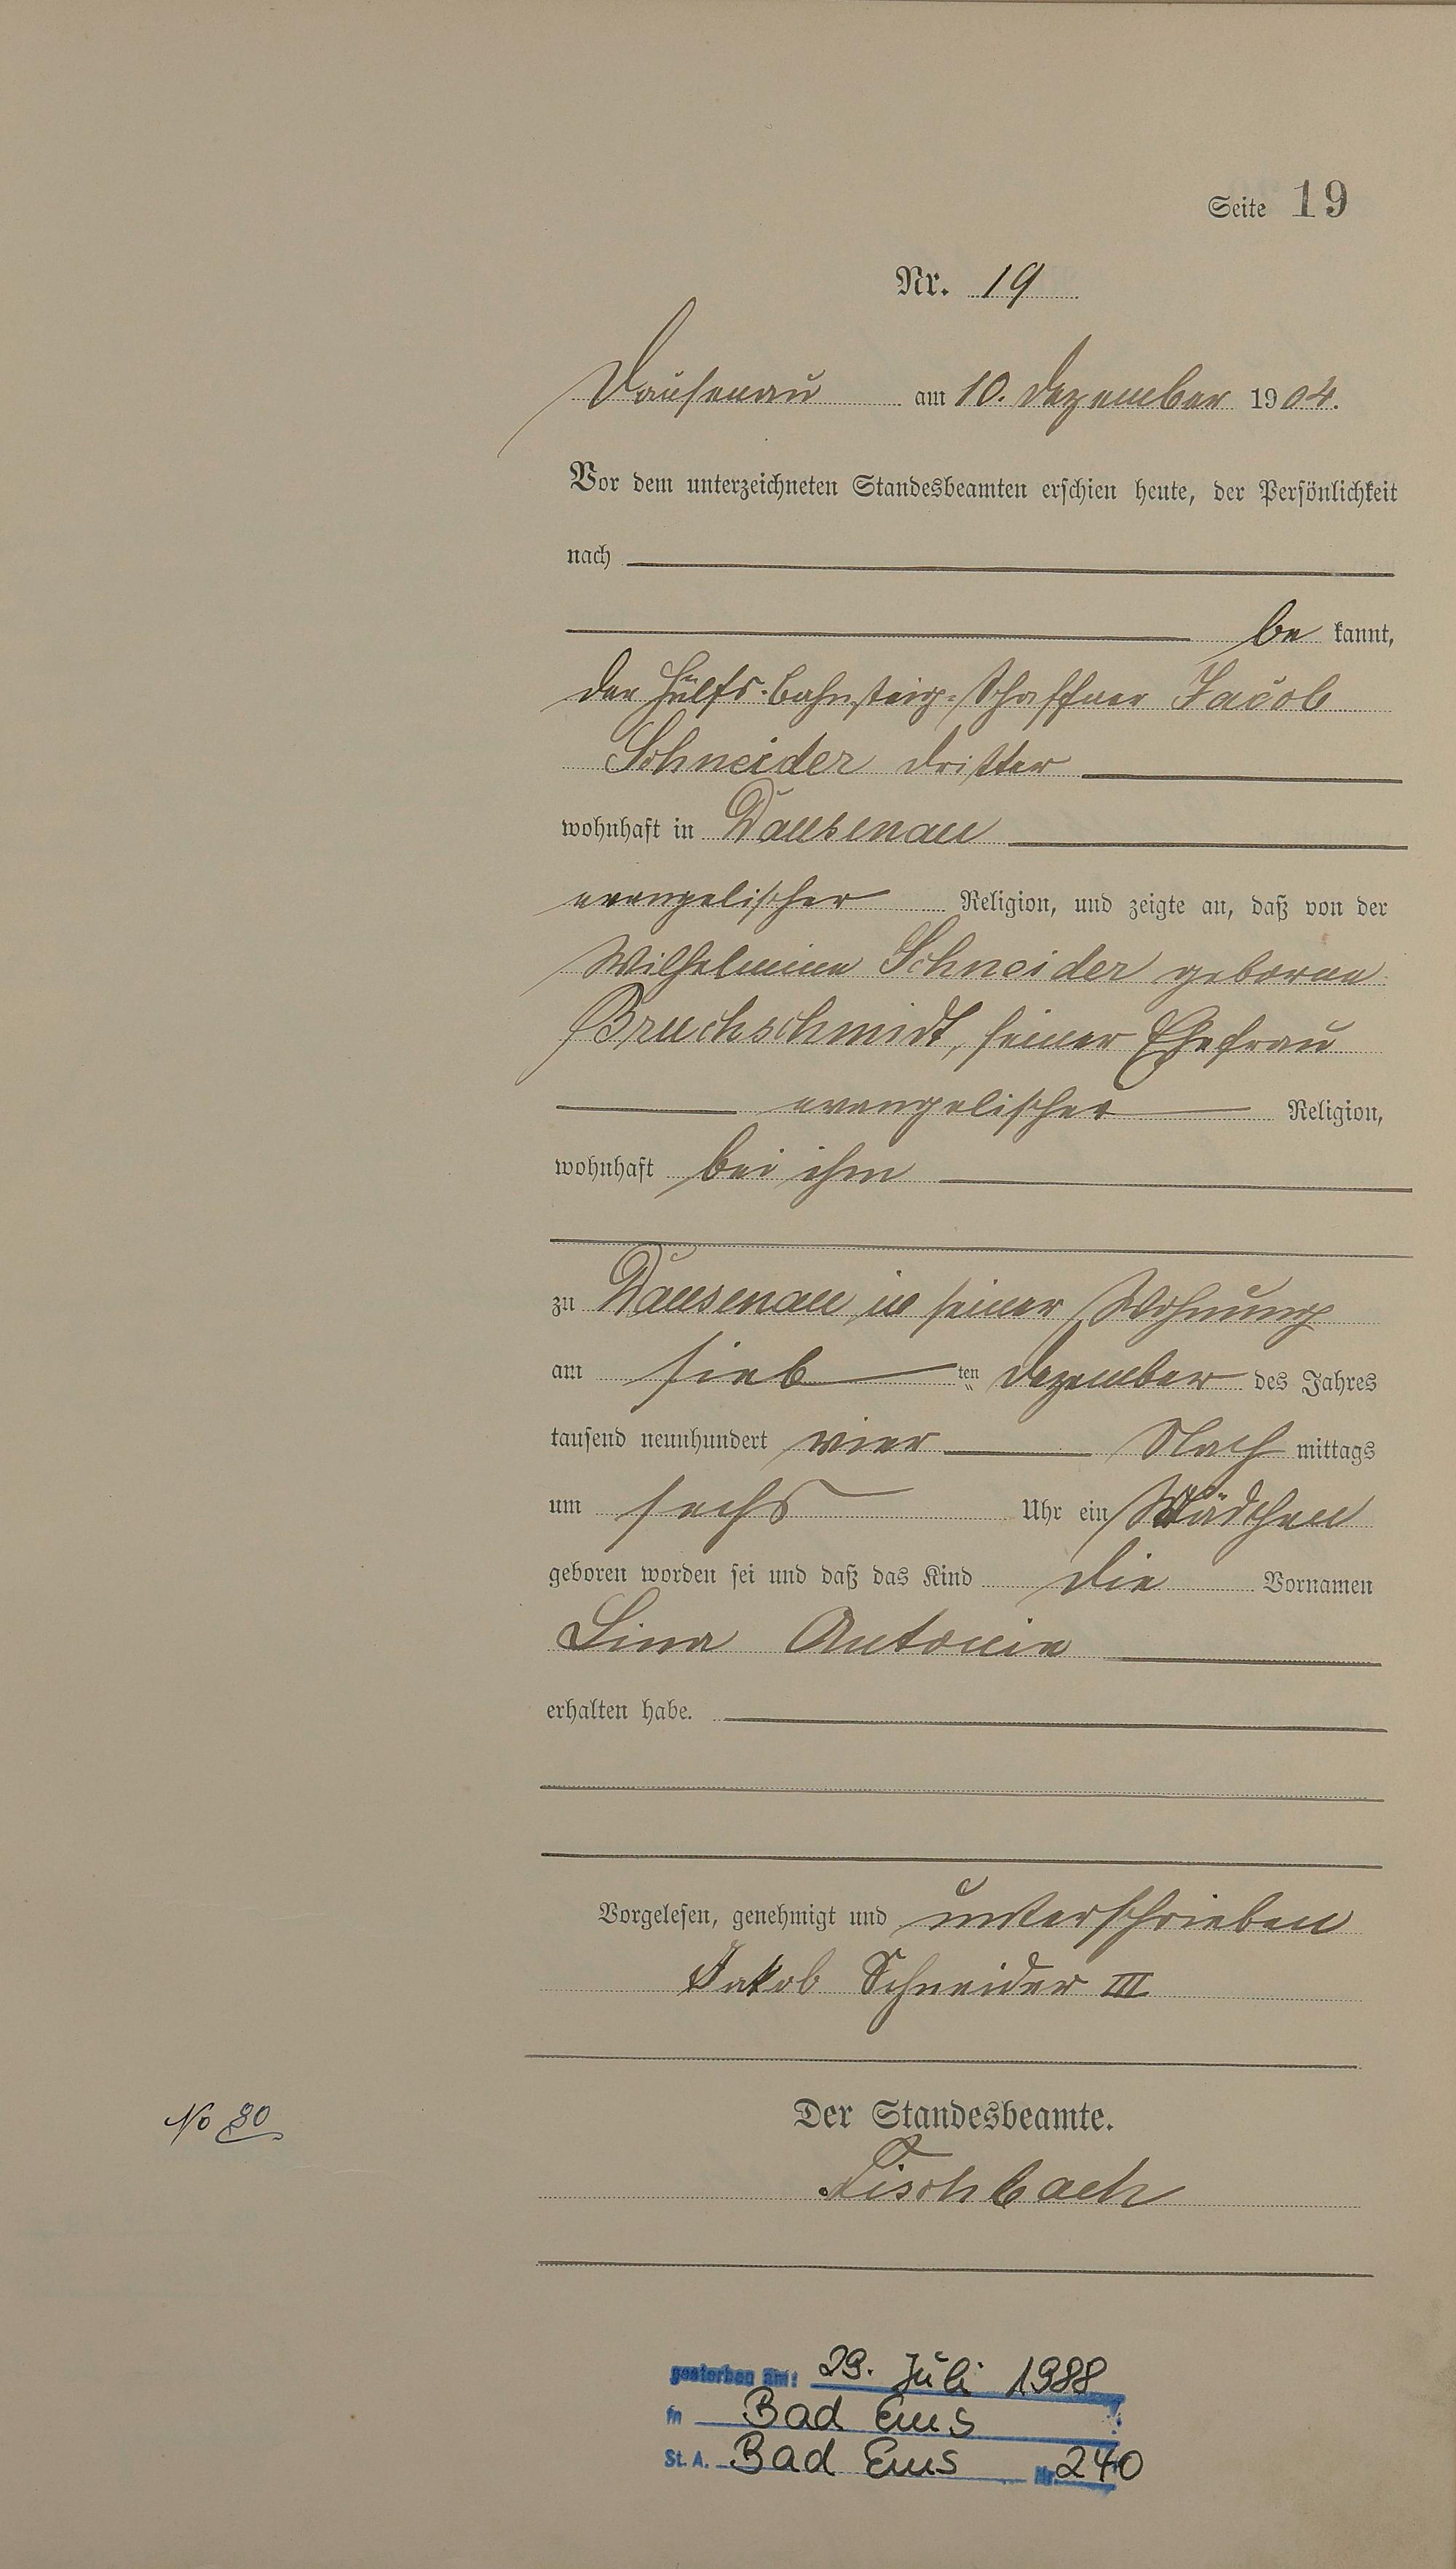 Seite 19
Nr. 19
Dausenau am 10. Dezember 1904.
Vor dem unterzeichneten Standesbeamten erschien heute, der Persönlichkeit
nach
be kannt,
der Hülfs-Bahnsteig-Schaffner Jacob
Schneider dritter
wohnhaft in Dausenau
evangelischer Religion, und zeigte an, daß von der
Wilhelmine Schneider geborne
Bruchschmidt, seiner Ehefrau
evangelischer Religion,
wohnhaft bei ihm
zu Dausenau in seiner Wohnung
am sieb ten Dezember des Jahres
tausend neunhundert vier Nach mittags
um sechs Uhr ein Mädchen
geboren worden sei und daß das Kind die Vornamen
Lina Antonie
erhalten habe.
Vorgelesen, genehmigt und unterschrieben
Jakob Schneider III
Der Standesbeamte.
No 80
Fischbach
gestorben am: 29. Juli 1988
in Bad Ems
St. A. Bad Ems Nr. 240